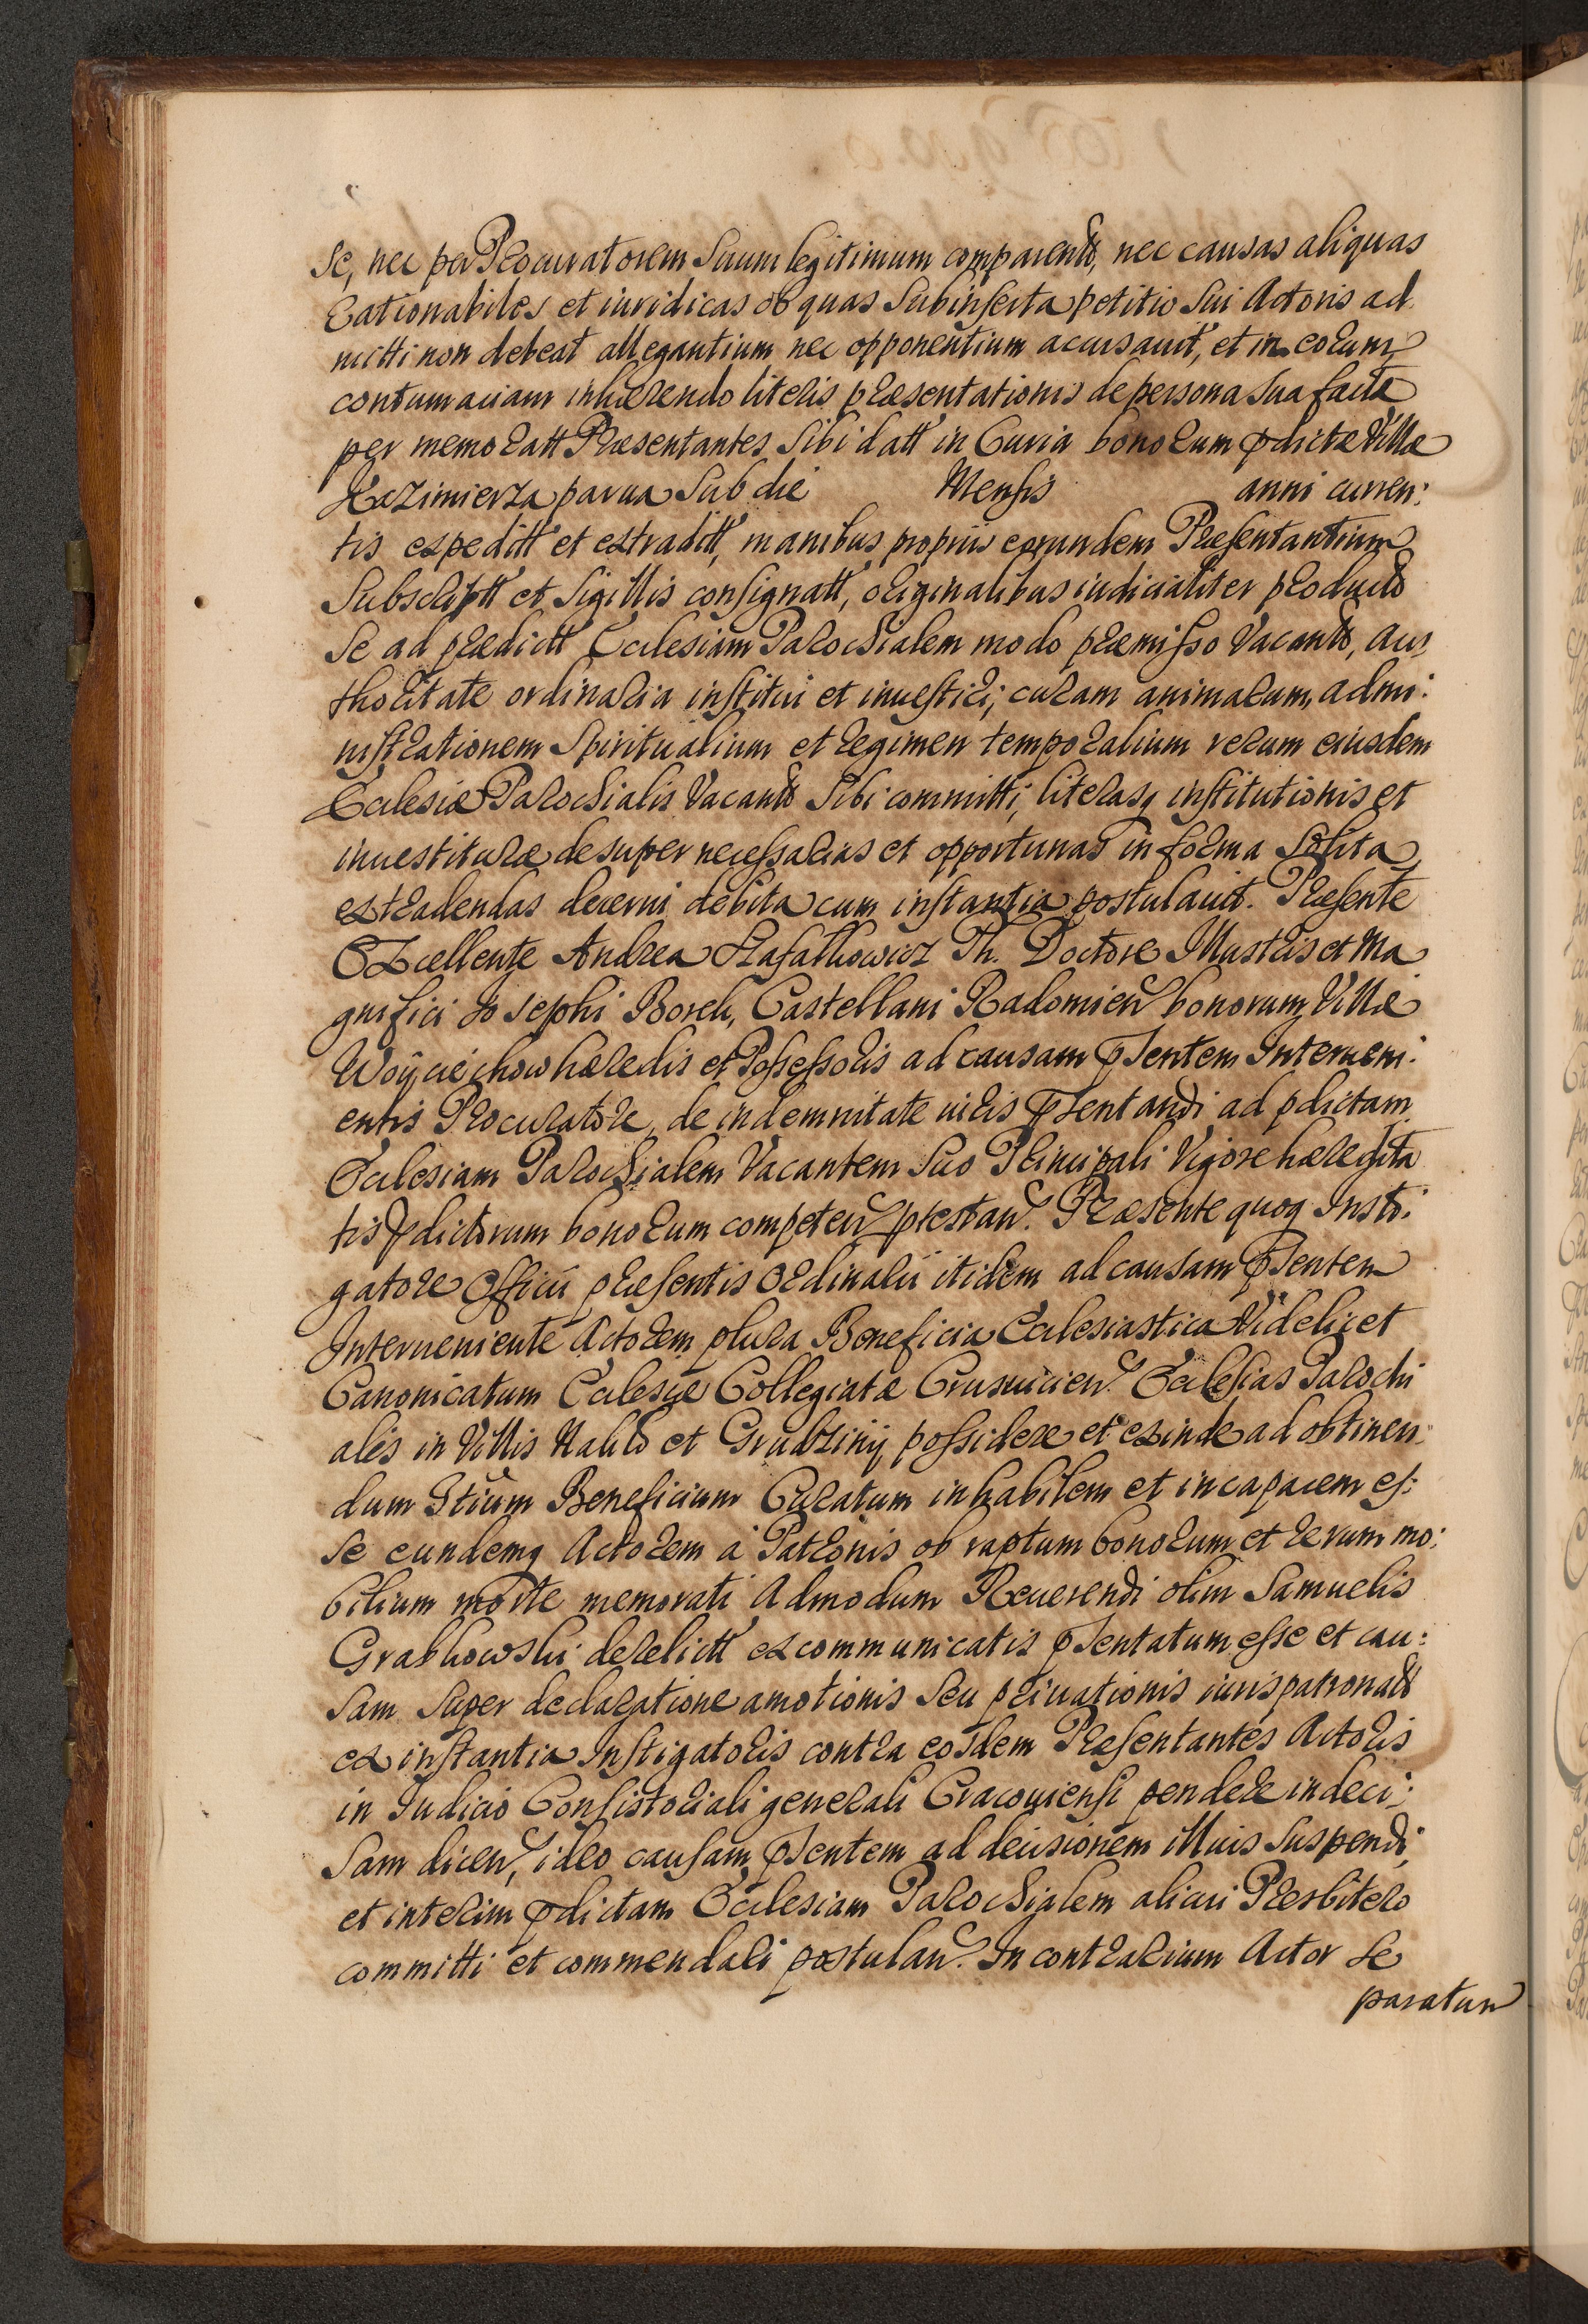 se, nec per Procuratorem suum legitimum comparentt, nec causas aliquas
rationabiles et iuridicas ob quas subinserta petitio sui Actoris ad
mitti non debeat allegantium nec opponentium accusauit, et in eorum
contumaciam inhærendo literis præsentationis de persona sua factæ
per memoratt Præsentantes sibi datt in Curia bonorum pdictæ Villæ
Kazimierza parua sub die Mensis anni curren:
tis expeditt et extraditt, manibus propriis eorundem Præsentantium
subscriptt et sigillis consignatt, originalibus iudicialiter productt
se ad prædictt Ecclesiam Parochialem modo præmisso Vacantt, au
thoritate ordinaria institui et inuestiri, curam animarum, admi:
nistrationem spiritualium et regimen temporalium rerum eiusdem
Ecclesiæ Parochialis Vacantt sibi committi, literasq institutionis et
inuestituræ desuper necessarias et opportunas in forma solita
extradendas decerni debita cum instantia postulauit. Præsente
Excellente Andrea Rafalkowicz Th. Doctore Illustris et Ma
gnifici Josephi Borek, Castellani Radomien bonorum Villæ
Woyciechow hæredis et Possessoris ad causam psentem Interueni:
entis Procuratore, de indemnitate iuris psentandi ad pdictam
Ecclesiam Parochialem Vacantem suo Principali Vigore hæredita
tis pdictorum bonorum competen ptestan. Præsente quoq Insti:
gatore Officii præsentis Ordinarii itidem ad causam psentem
Interueniente Actorem plura Beneficia Ecclesiastica Videlicet
Canonicatum Ecclesiæ Collegiatæ Crusuicien. Ecclesias Parochi
ales in Villis et Grudziny possidere et exinde ad obtinen:
dum Beneficium Curatum inhabilem et incapacem es:
se eundemq Actorem a Patronis ob raptum bonorum et rerum mo:
bilium morte memorati Admodum Reuerendi olim Samuelis
Grabkowski derelictt excommunicatis psentatum esse et cau:
sam super declaratione amotionis seu priuationis iurispatronatt
ex instantia Instigatoris contra eosdem Præsentantes Actoris
in Iudicio Consistoriali generali Cracouiensi pendere indeci:
sam dicen, ideo causam psentem ad decisionem illius suspendi,
et interim pdictam Ecclesiam Parochialem alicui Presbitero
committi et commendari postulan. In contrarium Actor se
paratum